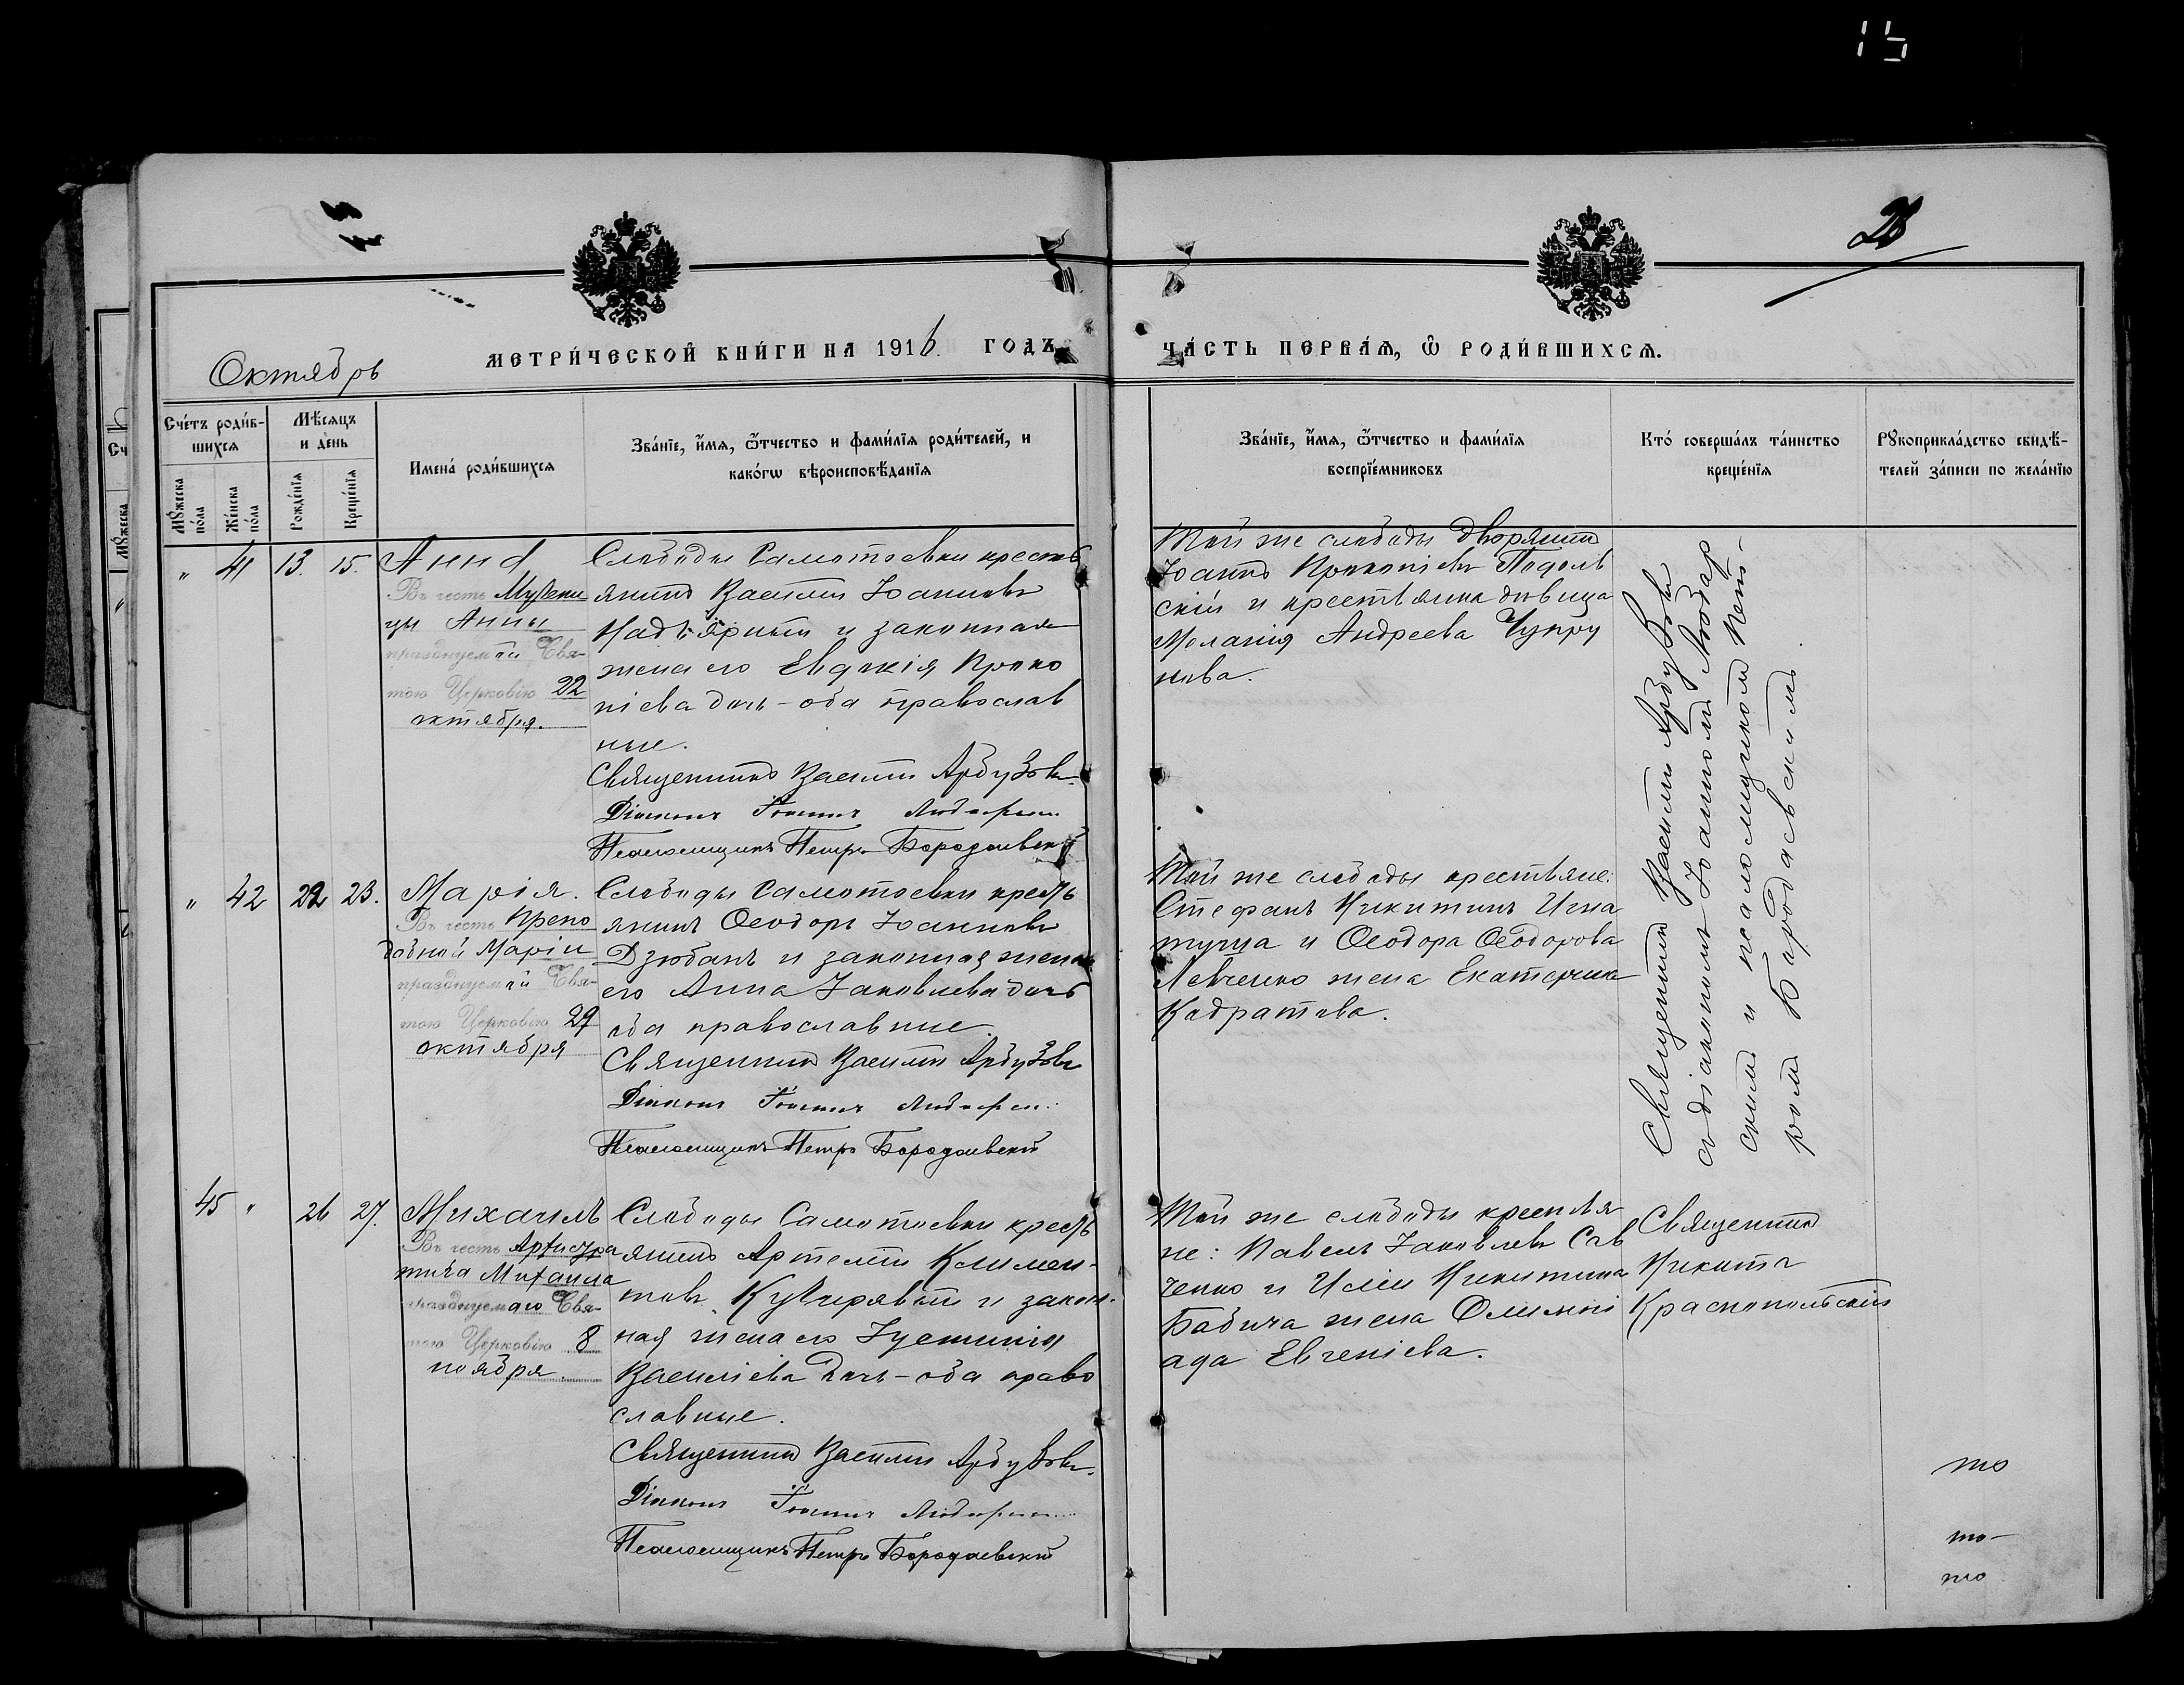 15
28
Октябрь
МЕТРИ́ЧЕСКОЙ КНИ́ГИ НА 1916. ГОДЪ,
ЧА́СТЬ ПЕРВА́Ѧ, Ѽ РОДИ́ВШИХСѦ.
Сче́тъ роди́в-
шихся
Мꙋ́жеска по́ла
Же́нска по́ла
Мѣ́сяцъ
и де́нь
Рожде́нїѧ
Креще́нїѧ
Имена́ роди́вшихсѧ
Зва́нїе, и́мѧ, ѻ҆́тчество и фами́лїѧ роди́телей, и
како́гѡ вѣроисповѣ́данїѧ
Зва́нїе, и́мѧ, ѻ҆́тчество и фами́лїѧ
воспрїе́мниковъ
Кто́ соверша́лъ та́инство
креще́нїѧ
Рꙋкоприкла́дство свидѣ́-
телей за́писи по жела́нїю
" 41 13. 15.
Анна
Въ честь Мучени
цы Анны
празднуемой Свя-
тою Церковію 22
октября.
Слободы Самотоевки кресть
янинъ Василій Іоанновъ
и законная
жена его Евдокія Проко
піева дочь - оба православ
ные.
Священникъ Василій Арбузовъ
Діаконъ Іоаннъ
Псаломщикъ Петръ Бородаевскій
Той же слободы дворянинъ
Іоаннъ Прокопіевъ Подоль
скій и крестьянка дѣвица
Меланія Андреева Чупру
нова.
Священникъ Василій Арбузовъ
съ діакономъ Іоанномъ Любар
скимъ и псаломщикомъ Пет-
ромъ Бородаевскимъ.
" 42 22 23.
Марія.
Въ честь Препо
добной Маріи
празднуемой Свя-
тою Церковію 29
октября
Слободы Самотоевки кресть
янинъ Ѳеодоръ Іоанновъ
Дзюбанъ и законная жена
его Анна Іаковлева дочь
оба православные.
Священникъ Василій Арбузовъ
Діаконъ Іоаннъ
Псаломщикъ Петръ Бородаевскій
Той же слободы крестьяне:
Стефанъ Никитинъ Игна
туща и Ѳеодора Ѳеодорова
Левченко жена Екатерина
Кодратова.
45 " 26 27.
Михаилъ
Въ честь Архистра
тига Михаила
празднуемаго Свя-
тою Церковію 8
ноября.
Слободы Самотоевки кресть
янинъ Артемій Климен-
товъ Кучерявый и закон-
ная жена его Іустинія
Василіева дочь - оба право
славные.
Священникъ Василій Арбузовъ.
Діаконъ Іоаннъ
Псаломщикъ Петръ Бородаевскій
Той же слободы крестья
не: Павелъ Іаковлевъ Сав
ченко и Иліи Никитина
Бабича жена Олимпі
ада Евгеніева.
Священникъ
Никита
Краснопольскій
то
то-
то